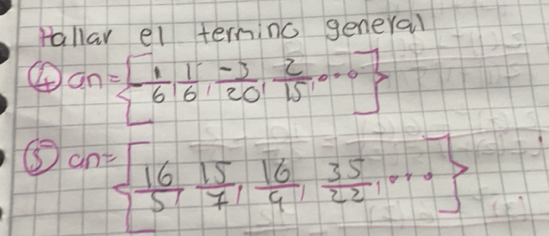 Hallar el termino general
④ an = { -1/6, 1/6, -3/20, 2/15, ... }
⑤ an = { 16/5, 15/7, 16/9, 35/22, ... }